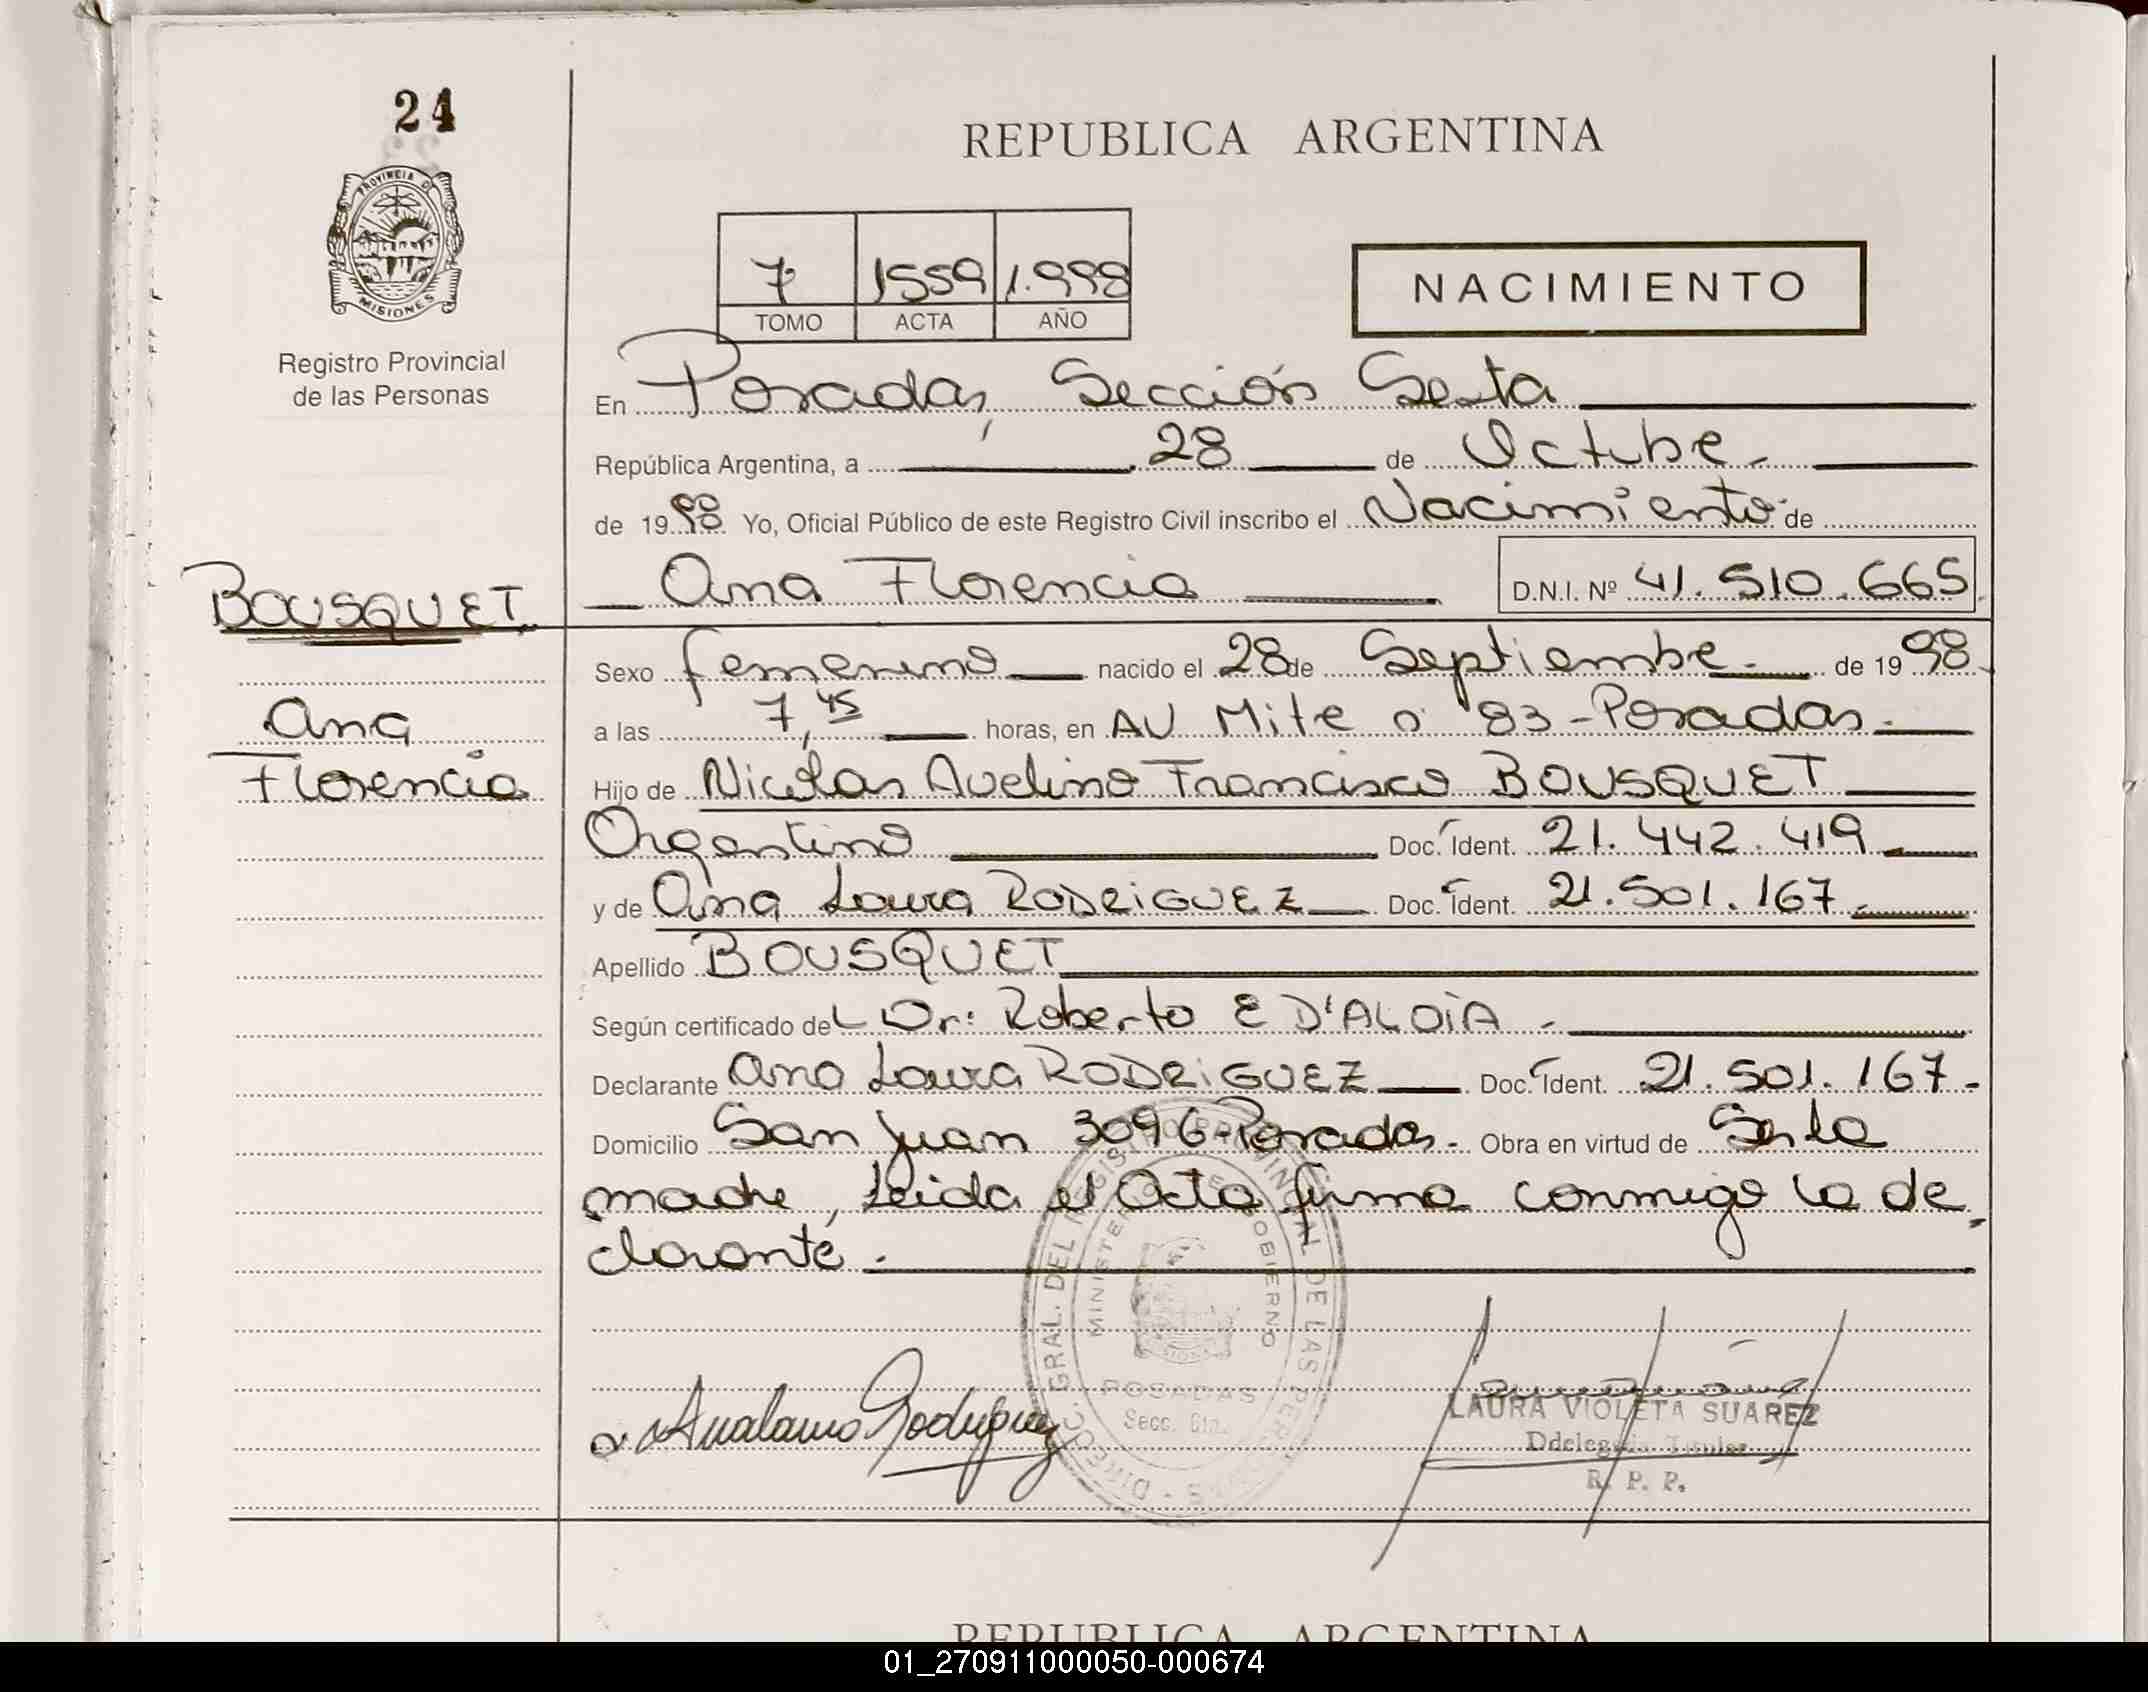 24
REPUBLICA ARGENTINA
PROVINCIA D
MISIONES
7 1559 1.998
TOMO ACTA AÑO
NACIMIENTO
Registro Provincial
de las Personas
En Posadas, Sección Sexta
República Argentina, a 28 de Octubre
de 1998 Yo, Oficial Público de este Registro Civil inscribo el Nacimiento de
BOUSQUET
Ana Florencia D.N.I. Nº 41.510.665
Sexo femenino nacido el 28 de Septiembre de 1998
Ana
a las 7,45 horas, en AV Mitre 83 - Posadas
Florencia
Hijo de Nicolas Avelino Francisco BOUSQUET
Argentino Doc. Ident. 21.442.419
y de Ana Laura RODRIGUEZ Doc. Ident. 21.501.167
Apellido BOUSQUET
Según certificado del Dr: Roberto E D'ALOIA
Declarante Ana Laura RODRIGUEZ Doc. Ident. 21.501.167
Domicilio San Juan 3096 - Posadas - Obra en virtud de Ser la
madre, Leida el Acta firma conmigo la de
clarante.
DIRECC. GRAL. DEL REGISTRO PROVINCIAL DE LAS PERSONAS
MINISTERIO DE GOBIERNO
MISIONES
POSADAS
Secc. 6ta.
Analaura Rodriguez
LAURA VIOLETA SUAREZ
Ddelegada Titular
R. P. P.
REPUBLICA ARGENTINA
01_270911000050-000674